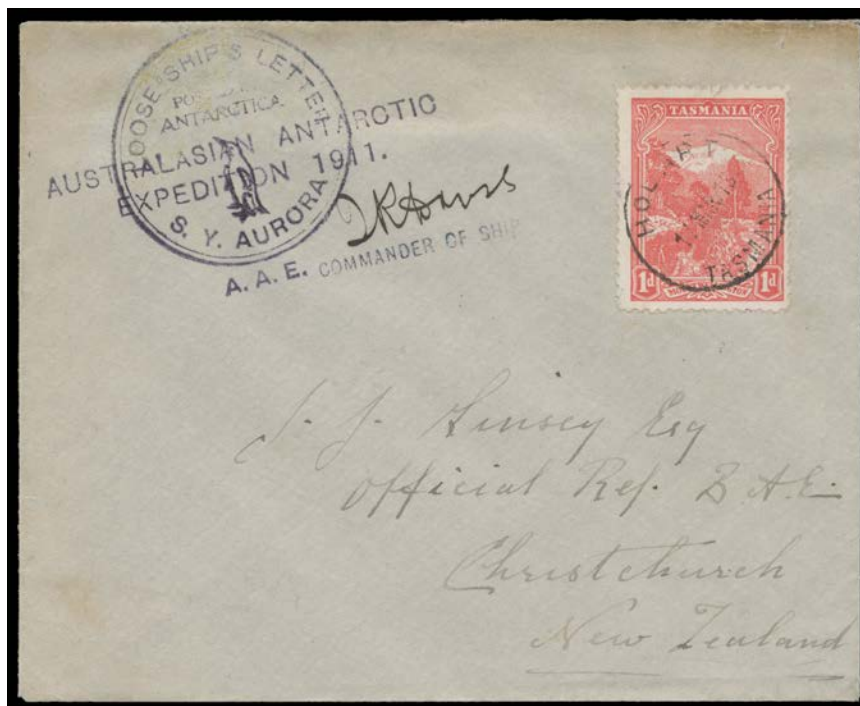 LOOSE SHIP'S LETTER
POSTED IN
ANTARCTICA
AUSTRALASIAN ANTARCTIC
EXPEDITION 1911.
S. Y. AURORA
A. A. E. COMMANDER OF SHIP
TASMANIA
HOBART
TASMANIA
1d 1d
J. J. Kinsey Esq
Official Rep. B.A.E.
Christchurch
New Zealand